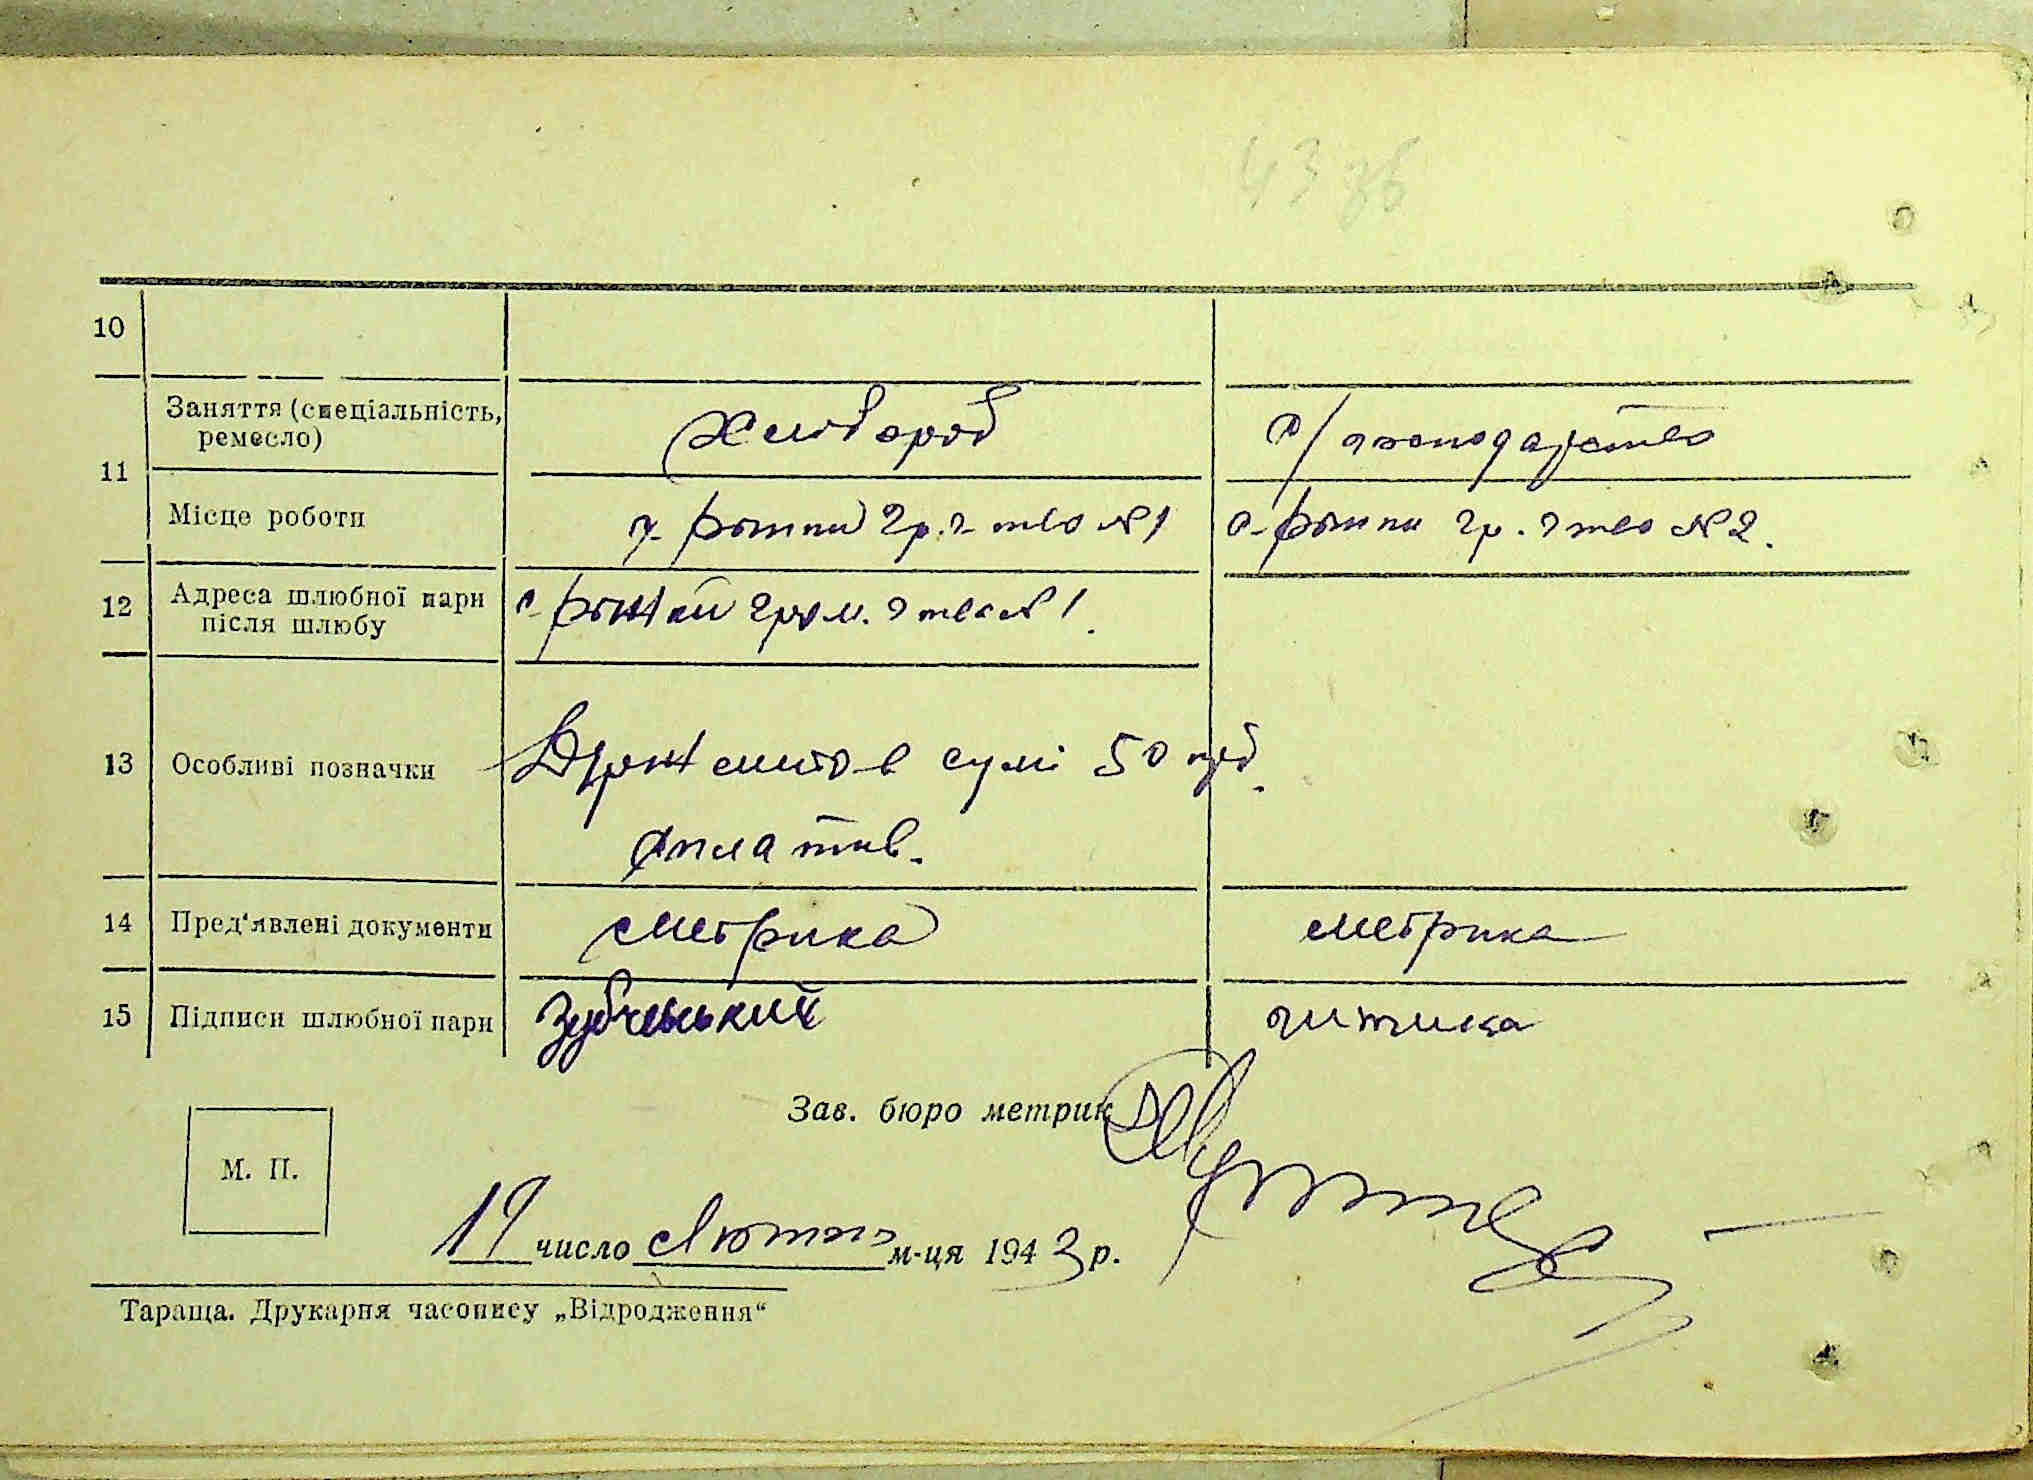 43 зв
10
Заняття (спеціальність, ремесло) Хлібороб с/господарство
11
Місце роботи с. Ріжки гр. г-тво №1 с. Ріжки гр. г-тво №2.
12 Адреса шлюбної пари після шлюбу с. Ріжки гром. г-тво №1.
13 Особливі позначки Держмито в сумі 50 крб.
оплатив.
14 Пред'явлені документи метрика метрика
15 Підписи шлюбної пари
Зав. бюро метрик
М. П.
19 число Лютого м-ця 1943 р.
Тараща. Друкарня часопису „Відродження“